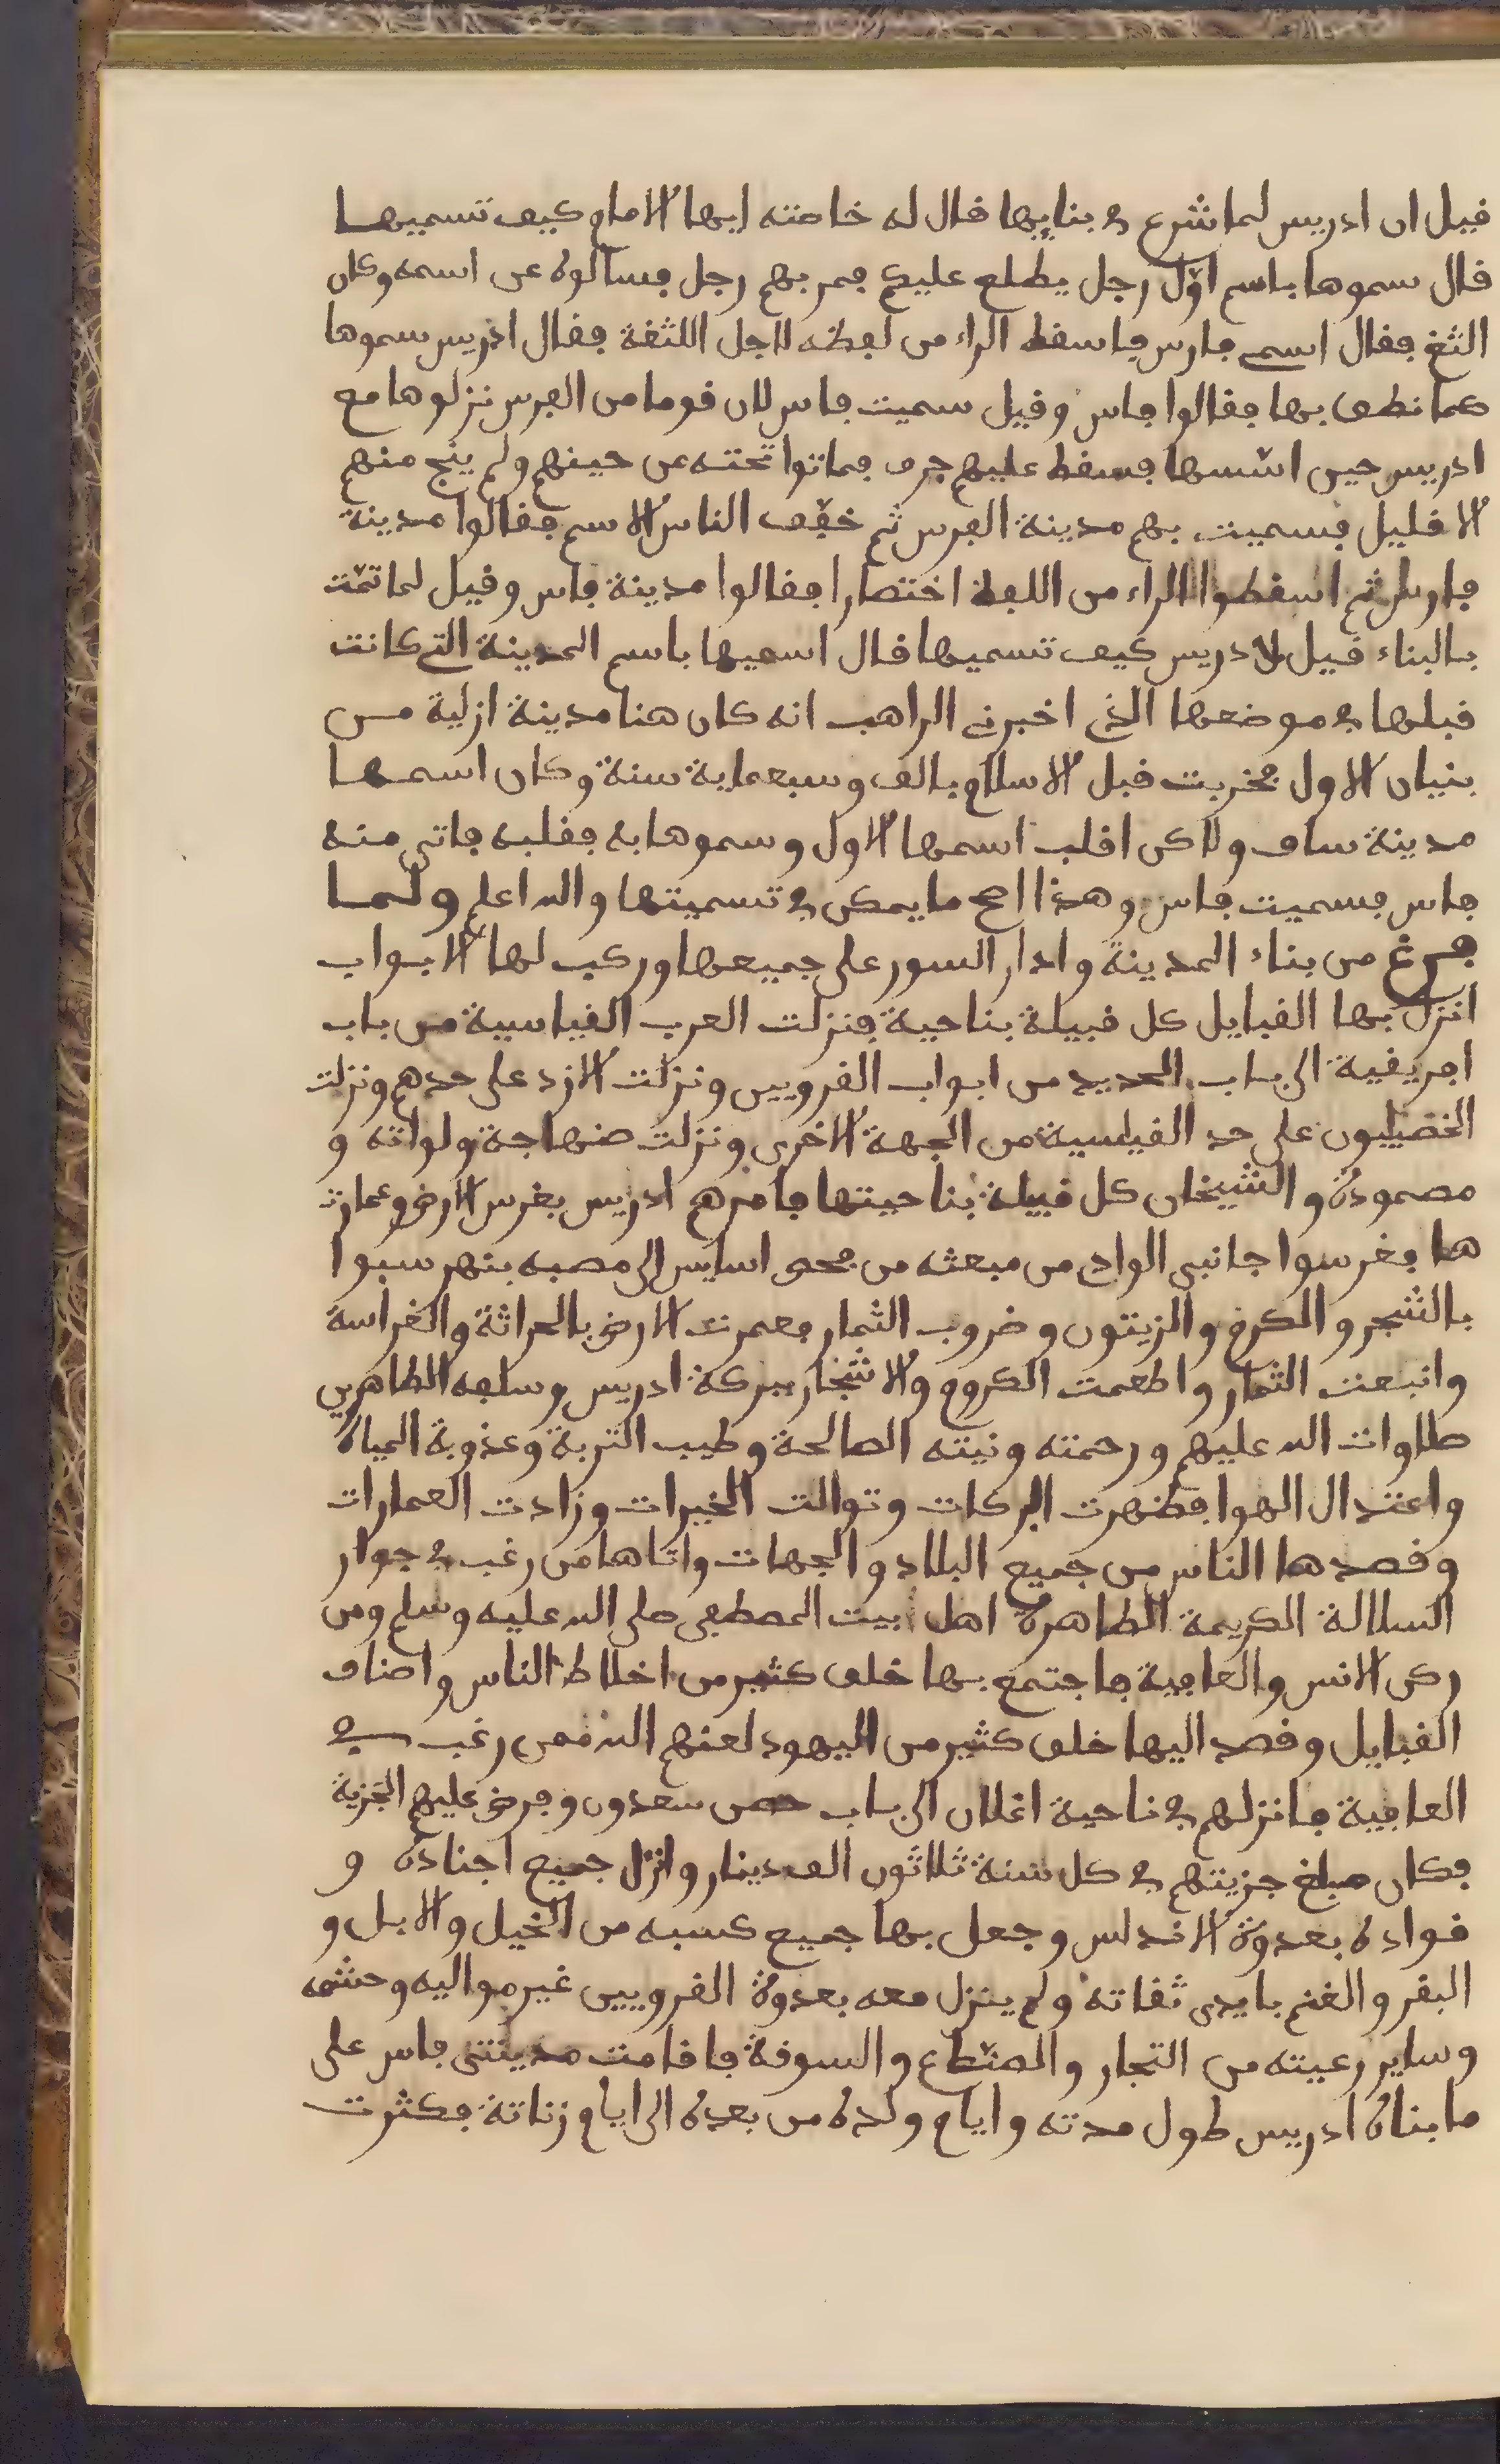 قيل ان ادريس لما شرع في بنايها قال له خاصته ايها الامام كيف تسميها
قال سموها باسم اوّل رجل يطلع عليكم فمر بهم رجل فسالوه عن اسمه وكان
الثغ فقال اسمي فارس فاسقط الراء من لفظه لاجل اللثغة فقال ادريس سموها
كما نطق بها فقالوا فاس وقيل سميت فاس لان قوما من الفرس نزلوها مع
ادريس حين اسّسها فسقط عليهم جرف فماتوا تحته عن حينهم ولم ينج منهم
الا قليل فسميت بهم مدينة الفرس ثم خفّف الناس الاسم فقالوا مدينة
فارس ثم اسقطوا الراء من اللفظ اختصارا فقالوا مدينة فاس وقيل لما تمّت
بالبناء قيل لادريس كيف تسميها قال اسميها باسم المدينة التي كانت
قبلها في موضعها الذي اخبرني الراهب انه كان هنا مدينة ازلية من
بنيان الاول فخربت قبل الاسلام بالف وسبعماية سنة وكان اسمها
مدينة ساف ولاكن اقلب اسمها الاول وسموها به فقلبه فاتى منه
فاس فسميت فاس وهذا اصح ما يمكن في تسميتها والله اعلم ولما
فرغ من بناء المدينة وادار السور على جميعها وركب لها الابواب
انزل بها القبايل كل قبيلة بناحية فنزلت العرب القياسية من باب
افريقية الى باب الحديد من ابواب القرويين ونزلت الازد على حدهم ونزلت
الخصيليون على حد القيلسية من الجهة الاخرى ونزلت صنهاجة ولواته و
مصمودة والشيخان كل قبيلة بناحيتها فامرهم ادريس بغرس الارض وعمارت
ها فغرسوا جانبي الوادي من مبعثه من فحص اسايس الى مصبه بنهر سبوا
بالشجر والكرم والزيتون وضروب الثمار فعمرت الارض بالحراثة والغراسة
وانبعت الثمار واطعمت الكروم والاشجار ببركة ادريس وسلفه الطاهرين
صلاوات الله عليهم ورحمته ونيته الصالحة وطيب التربة وعذوبة المياه
واعتدال الهوا فظهرت البركات وتوالت الخيرات وزادت العمارات
وقصدها الناس من جميع البلاد والجهات واتاها من رغب في جوار
السلالة الكريمة الطاهرة اهل بيت المصطفى صلى الله عليه وسلم ومن
ركن الانس والعافية فاجتمع بها خلق كثير من اخلاط الناس واصناف
القبايل وقصد اليها خلق كثير من اليهود لعنهم الله ممن رغب في
العافية فانزلهم في ناحية اغلان الى باب حصن سعدون وفرض عليهم الجزية
فكان مبلغ جزيتهم في كل سنة ثلاثون الف دينار وانزل جميع اجناده و
قواده بعدوة الاندلس وجعل بها جميع كسبه من الخيل والابل و
البقر والغنم بايدى ثقاته ولم ينزل معه بعدوة القرويين غير مواليه وحشمه
وساير رعيته من التجار والصنّاع والسوقة فاقامت مدينتى فاس على
ما بناه ادريس طول مدته وايام ولده من بعده الى ايام زناتة فكثرت